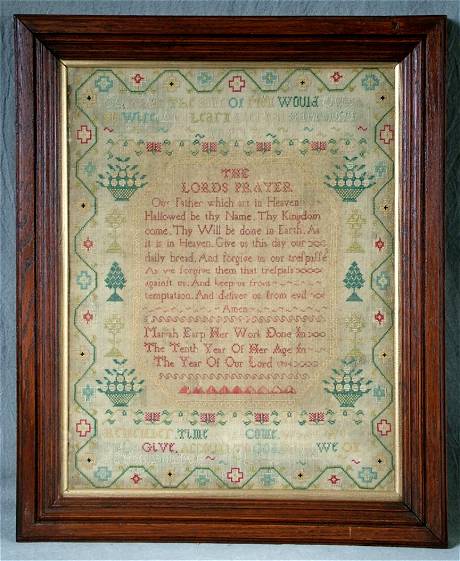 The Of Would
Wise Learn
THE
LORDS PRAYER
Our Father which art in Heaven
Hallowed be thy Name. Thy Kingdom
come. Thy Will be done in Earth. As
it is in Heaven. Give us this day our
daily bread. And forgive us our treſpaſſe
As we forgive them that treſpaſs
againſt us. And keep us from
temptation. And deliver us from evil
Amen
Mariah Earp Her Work Done In
The Tenth Year Of Her Age In
The Year Of Our Lord
Time Come
Give We